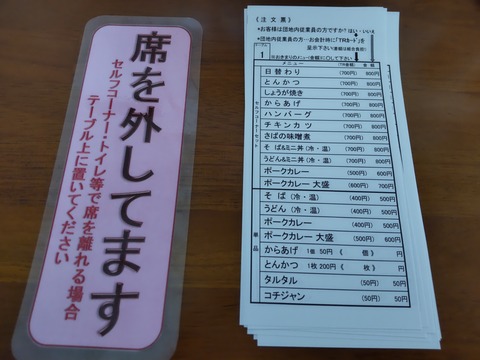 席を外してます
セルフコーナー・トイレ等で席を離れる場合
テーブル上に置いてください
《 注 文 票 》
*お客様は団地内従業員の方ですか？はい・いいえ
*団地内従業員の方…お会計時に「TRカード」を
提示下さい(差額は組合負担)
テーブル
1
※お決まりのメニュー金額に○して下さい
メニュー (TR金額) 金 額
セルフコーナーセット
日替わり (700円) 800円
とんかつ (700円) 800円
しょうが焼き (700円) 800円
からあげ (700円) 800円
ハンバーグ (700円) 800円
チキンカツ (700円) 800円
さばの味噌煮 (700円) 800円
そば&ミニ丼 (冷・温) (700円) 800円
うどん&ミニ丼 (冷・温) (700円) 800円
ポークカレー (600円) 700円
ポークカレー 大盛 (600円) 700円
単品
そ ば (冷・温) (400円) 500円
うどん (冷・温) (400円) 500円
ポークカレー (400円) 500円
ポークカレー 大盛 (500円) 600円
からあげ 1個 50円 ( 個) 円
とんかつ 1枚 200円 ( 枚) 円
タルタル (50円) 50円
コチジャン (50円) 50円